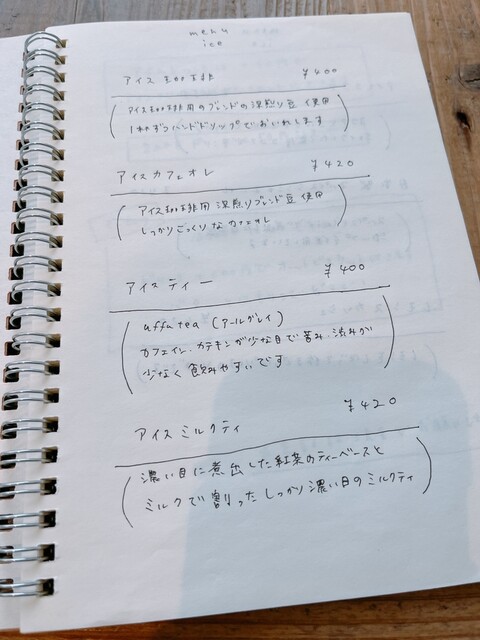 menu
ice
アイス珈琲 ¥400
アイス珈琲用のブレンドの深煎り豆 使用
1杯ずつハンドドリップでおいれします
アイスカフェオレ ¥420
アイス珈琲用 深煎りブレンド豆 使用
しっかりこっくりなカフェオレ
アイスティー ¥400
uffu tea (アールグレイ)
カフェイン、カテキンが少な目で苦み、渋みが
少なく飲みやすいです
アイスミルクティ ¥420
濃い目に煮出した紅茶のティーベースと
ミルクで割ったしっかり濃い目のミルクティ